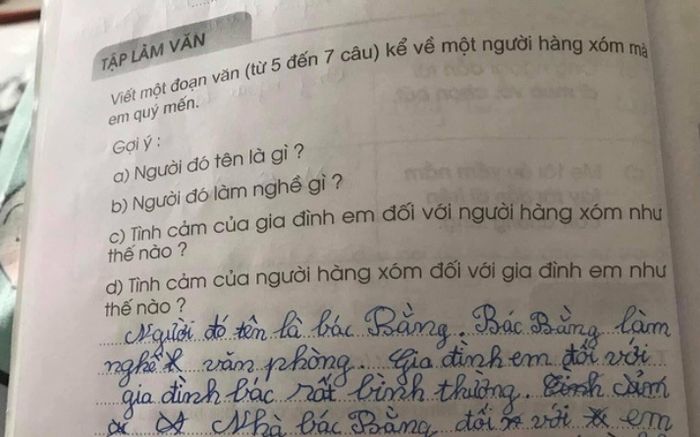 TẬP LÀM VĂN
Viết một đoạn văn (từ 5 đến 7 câu) kể về một người hàng xóm mà
em quý mến.
Gợi ý :
a) Người đó tên là gì ?
b) Người đó làm nghề gì ?
c) Tình cảm của gia đình em đối với người hàng xóm như
thế nào ?
d) Tình cảm của người hàng xóm đối với gia đình em như
thế nào ?
Người đó tên là bác Bằng. Bác Bằng làm
nghề văn phòng. Gia đình em đối với
gia đình bác rất bình thường. cảm
Nhà bác Bằng đối với em